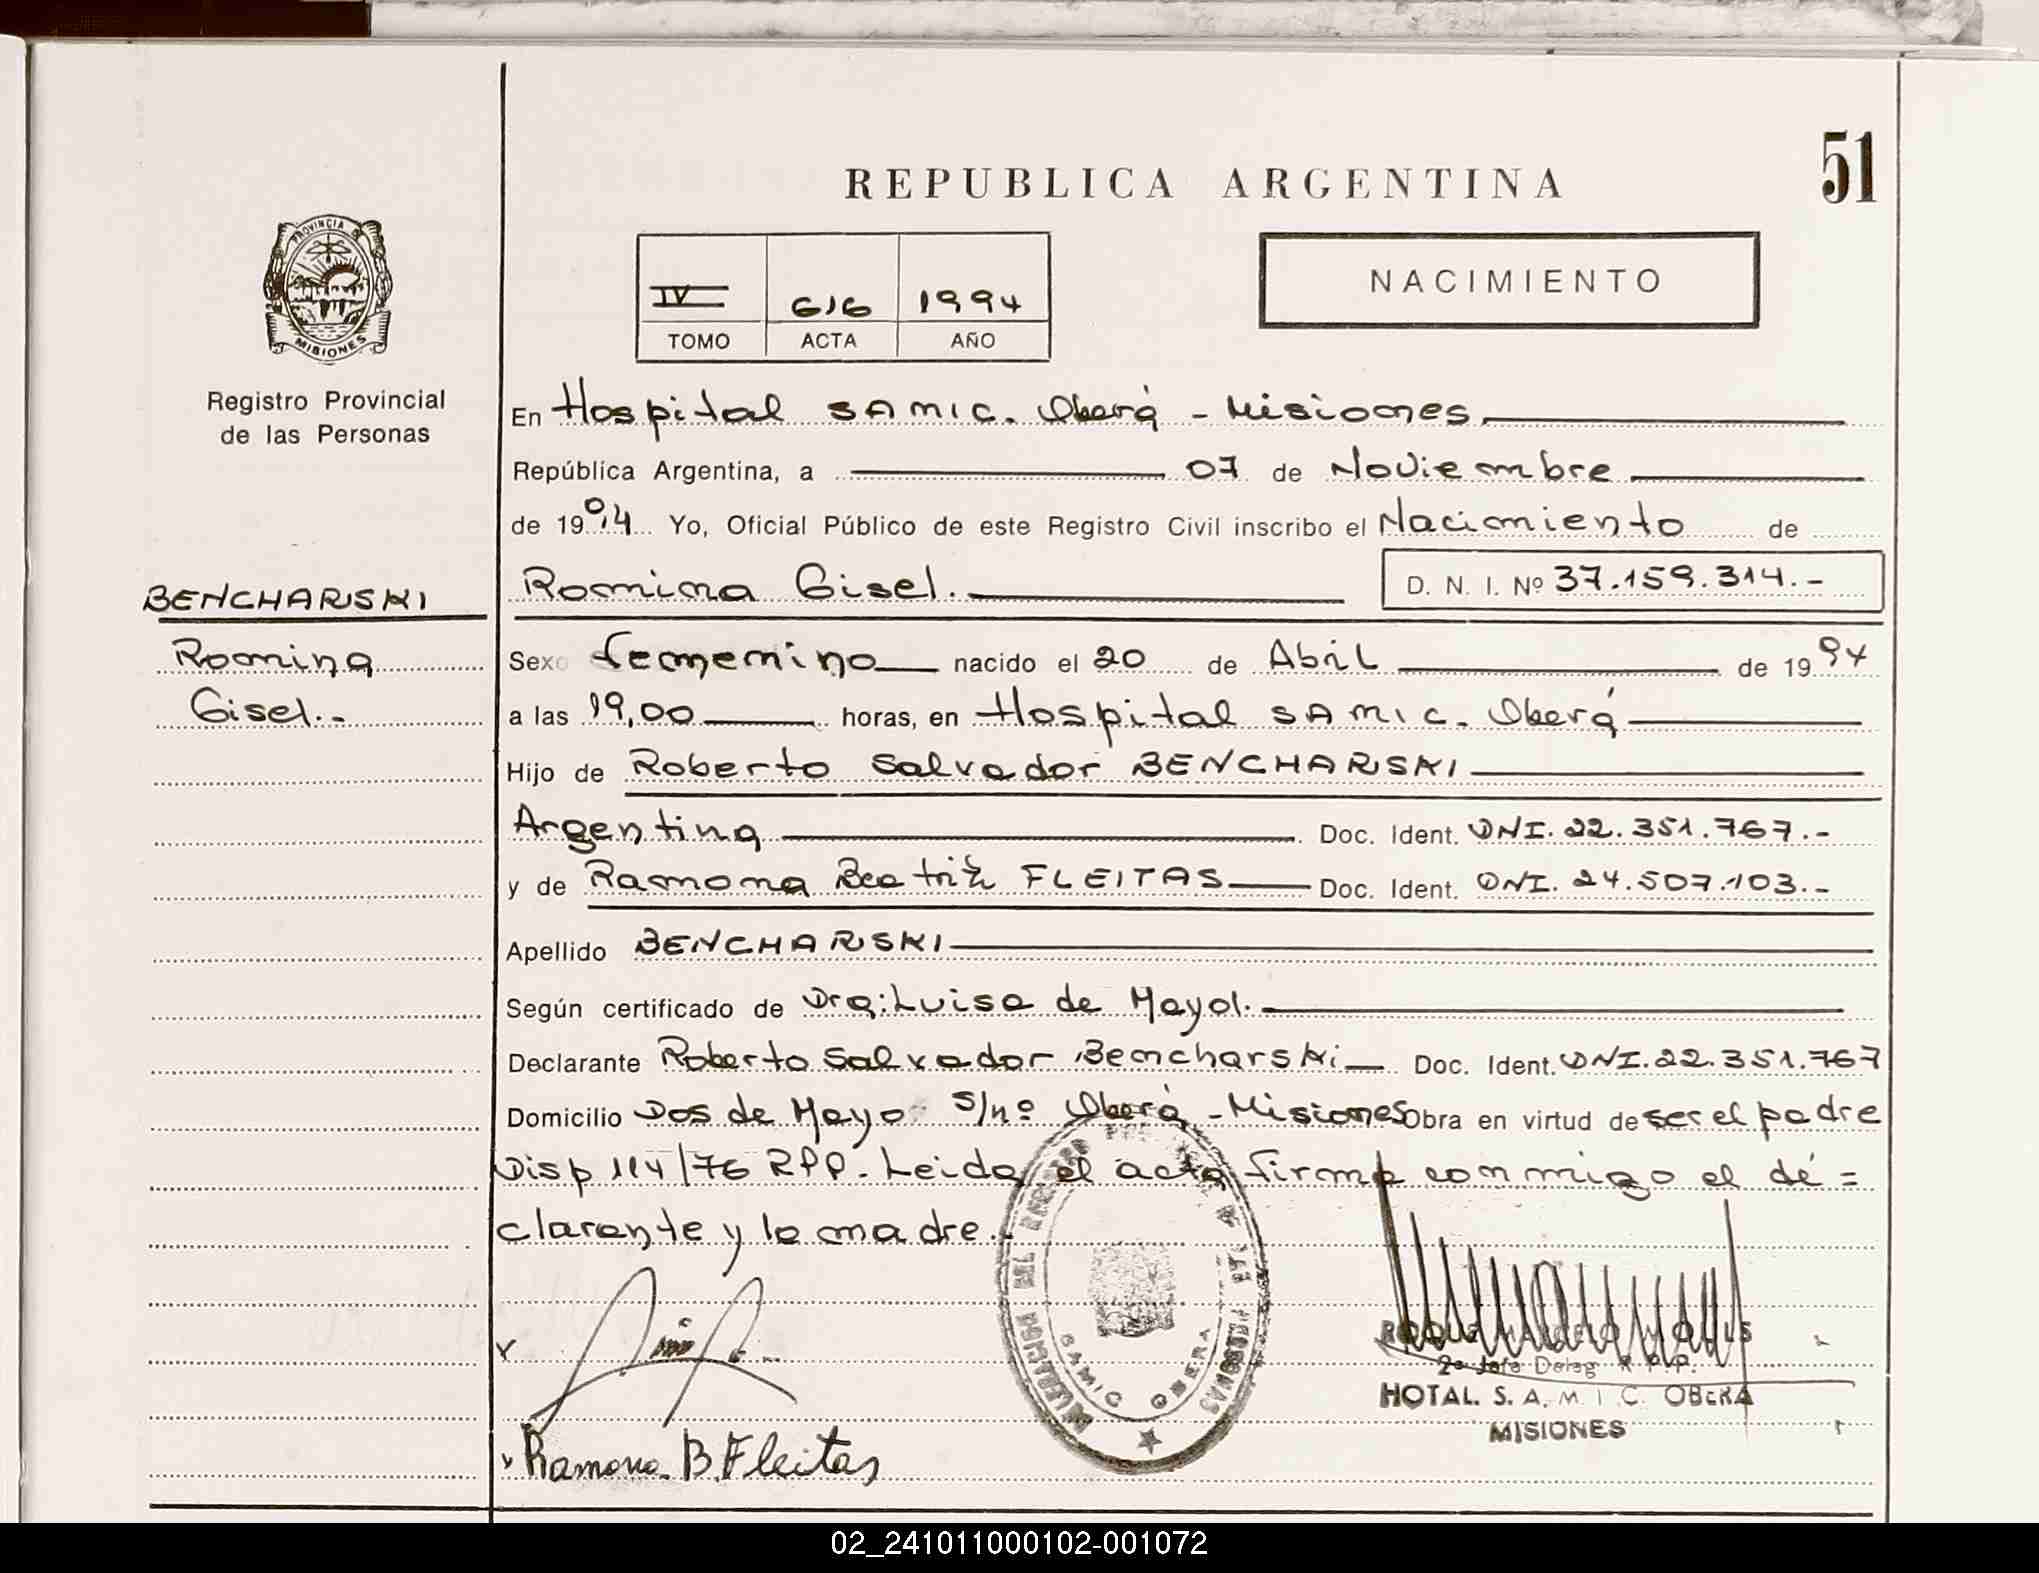 51
REPUBLICA ARGENTINA
PROVINCIA DE
MISIONES
Registro Provincial
de las Personas
IV 616 1994
TOMO ACTA AÑO
NACIMIENTO
En Hospital SAMIC. Oberá - Misiones
República Argentina, a 07 de Noviembre
de 1994 Yo, Oficial Público de este Registro Civil inscribo el Nacimiento de
BENCHARSKI
Romina Gisel. D. N. I. Nº 37.159.314.-
Romina
Gisel.-
Sexo femenino nacido el 20 de Abril de 1994
a las 19,00 horas, en Hospital SAMIC. Oberá
Hijo de Roberto Salvador BENCHARSKI
Argentina Doc. Ident. DNI. 22.351.767.-
y de Ramona Beatriz FLEITAS Doc. Ident. DNI. 24.507.103.-
Apellido BENCHARSKI
Según certificado de Dra: Luisa de Mayol.
Declarante Roberto Salvador Bencharski Doc. Ident. DNI. 22.351.767
Domicilio Dos de Mayo S/nº Oberá - Misiones Obra en virtud de ser el padre
Disp 114/76 RPP. Leida el acta firma conmigo el de=
clarante y la madre.
SAMIC OBERA
ROQUE
2º Jefe Deleg R.P.P.
HOTAL. S. A. M. I. C. OBERA
MISIONES
Ramona B. Fleitas
02_241011000102-001072